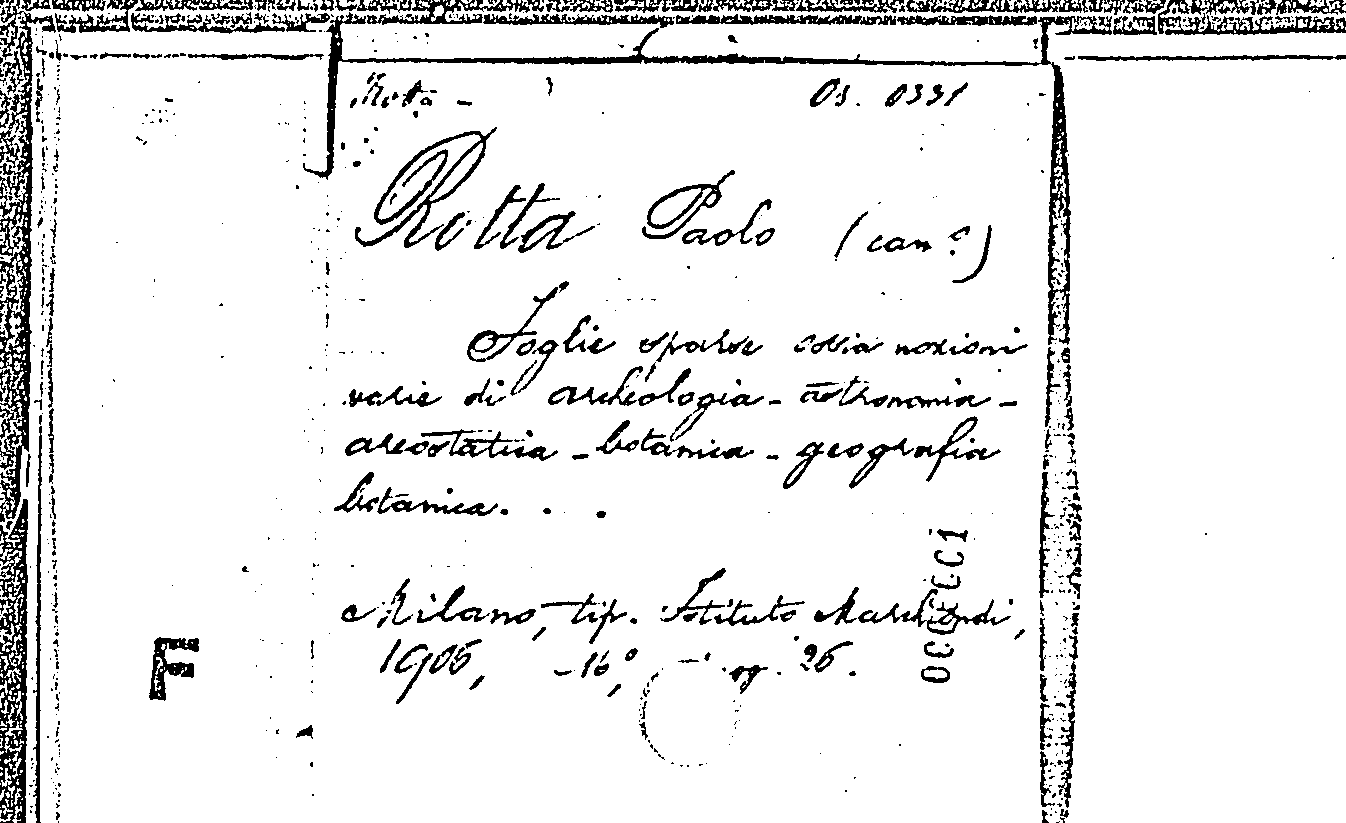 Rotta -
Os. 0331
Rotta Paolo (can.º)
Foglie sparse ossia nozioni
varie di archeologia - astronomia -
areostatica - botanica - geografia
botanica. . .
Milano, tip. Istituto Marchiondi,
1906, -16º, pag. 26.
F